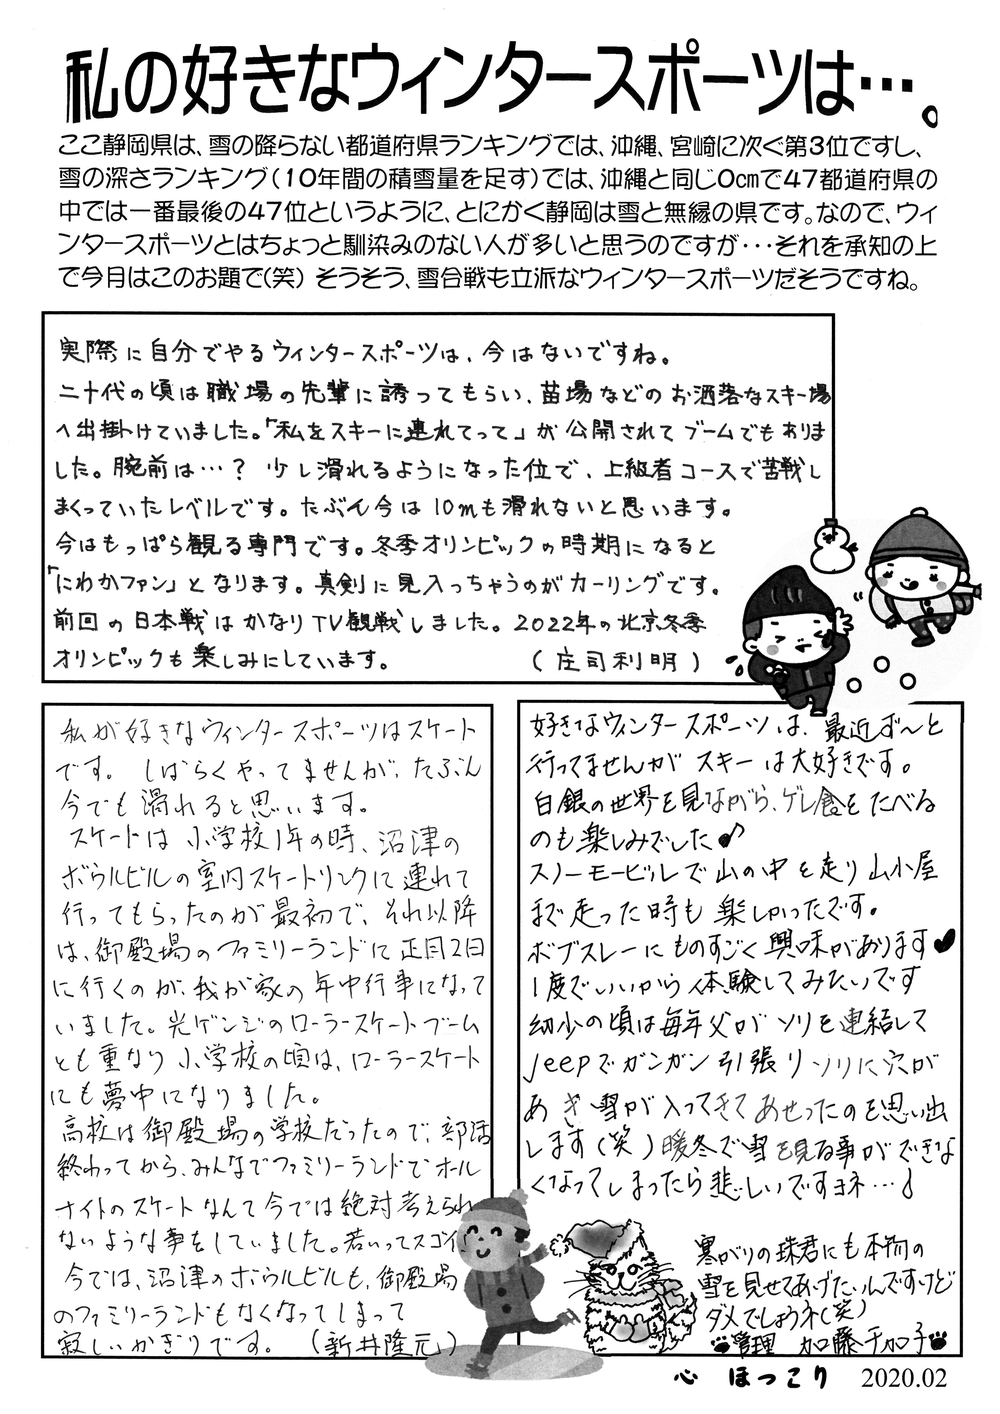 私の好きなウィンタースポーツは…。
ここ静岡県は、雪の降らない都道府県ランキングでは、沖縄、宮崎に次ぐ第3位ですし、
雪の深さランキング(10年間の積雪量を足す)では、沖縄と同じ0cmで47都道府県の
中では一番最後の47位というように、とにかく静岡は雪と無縁の県です。なので、ウィ
ンタースポーツとはちょっと馴染みのない人が多いと思うのですが・・・それを承知の上
で今月はこのお題で(笑) そうそう、雪合戦も立派なウィンタースポーツだそうですね。
実際に自分でやるウィンタースポーツは、今はないですね。
二十代の頃は職場の先輩に誘ってもらい、苗場などのお洒落なスキー場
へ出掛けていました。「私をスキーに連れてって」が公開されてブームでもありま
した。腕前は…？ 少し滑れるようになった位で、上級者コースで苦戦し
まくっていたレベルです。たぶん今は10mも滑れないと思います。
今はもっぱら観る専門です。冬季オリンピックの時期になると
「にわかファン」となります。真剣に見入っちゃうのがカーリングです。
前回の日本戦はかなりTV観戦しました。2022年の北京冬季
オリンピックも楽しみにしています。 (庄司利明)
私が好きなウィンタースポーツはスケート
です。しばらくやってませんが、たぶん
今でも滑れると思います。
スケートは小学校1年の時、沼津の
ボウルビルの室内スケートリンクに連れて
行ってもらったのが最初で、それ以降
は、御殿場のファミリーランドに正月2日
に行くのが、我が家の年中行事になって
いました。光ゲンジのローラースケートブーム
とも重なり小学校の頃は、ローラースケート
にも夢中になりました。
高校は御殿場の学校だったので、部活
終わってから、みんなでファミリーランドでオール
ナイトのスケートなんて今では絶対考えられ
ないような事をしていました。若いってスゴイ
今では、沼津のボウルビルも、御殿場
のファミリーランドもなくなってしまって
寂しいかぎりです。 (新井隆元)
好きなウィンタースポーツは、最近ず〜と
行ってませんがスキーは大好きです。
白銀の世界を見ながら、ゲレ食をたべる
のも楽しみでした♪
スノーモービルで山の中を走り山小屋
まで走った時も楽しかったです。
ボブスレーにものすごく興味があります♥
1度でいいから体験してみたいです
幼少の頃は毎年父がソリを連結して
Jeepでガンガン引張りソリに穴が
あき雪が入ってきてあせったのを思い出
します(笑)暖冬で雪を見る事ができな
くなってしまったら悲しいですヨネ…♪
寒がりの珠君にも本物の
雪を見せてあげたいんですけど
ダメでしょうネ(笑)
管理 加藤千加子
心 ほっこり 2020.02